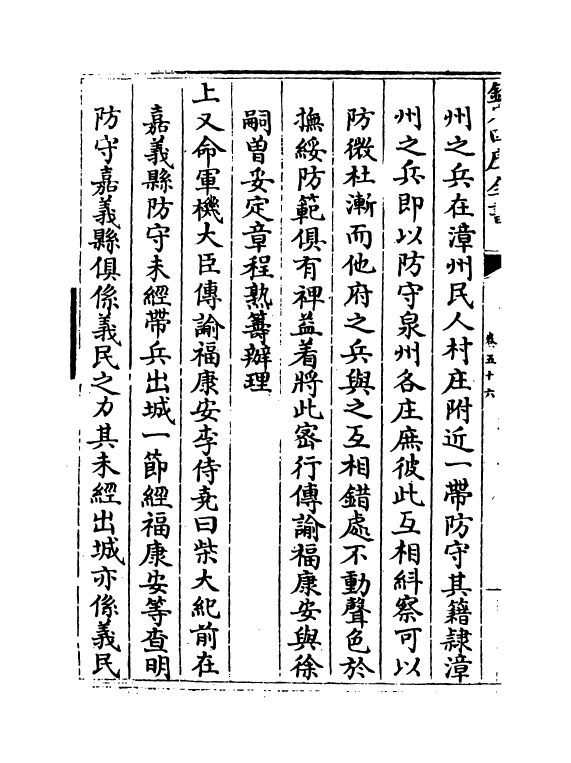 欽定四庫全書
卷五十六
州之兵在漳州民人村庄附近一帶防守其籍隸漳
州之兵即以防守泉州各庄庶彼此互相糾察可以
防微杜漸而他府之兵與之互相錯處不動聲色於
撫綏防範俱有裨益着將此密行傳諭福康安與徐
嗣曽妥定章程熟籌辦理
上又命軍機大臣傳諭福康安李侍堯曰柴大紀前在
嘉義縣防守未經帶兵出城一節經福康安等查明
防守嘉義縣俱係義民之力其未經出城亦係義民